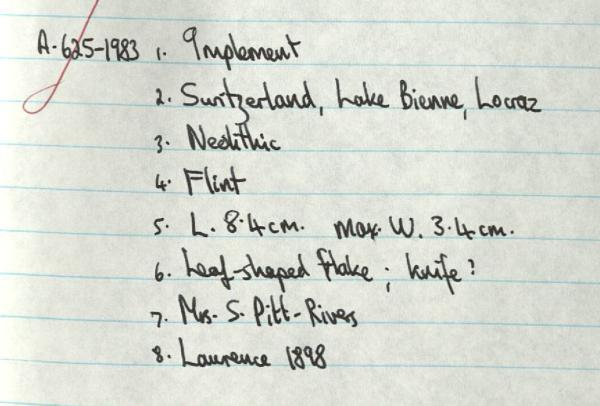 A.625-1983 1. Implement
2. Switzerland, Lake Bienne, Locraz
3. Neolithic
4. Flint
5. L. 8.4cm. Max. W. 3.4cm.
6. Leaf-shaped flake ; knife?
7. Mrs. S. Pitt-Rivers
8. Laurence 1898